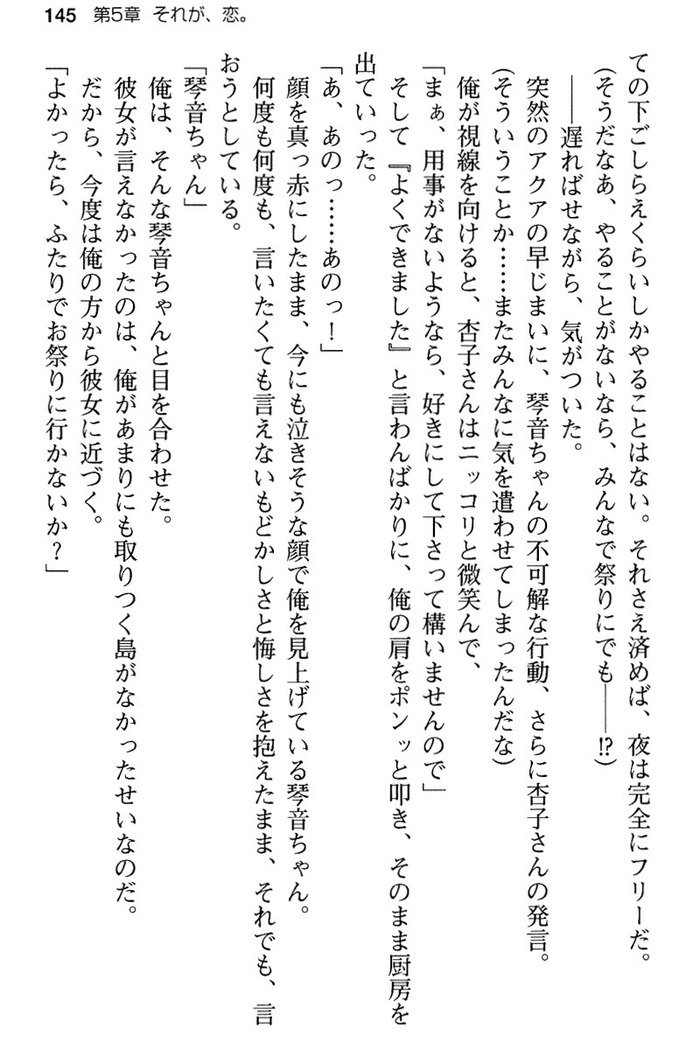 145 第5章 それが、恋。
ての下ごしらえくらいしかやることはない。それさえ済めば、夜は完全にフリーだ。
(そうだなあ、やることがないなら、みんなで祭りにでも――!?)
――遅ればせながら、気がついた。
突然のアクアの早じまいに、琴音ちゃんの不可解な行動、さらに杏子さんの発言。
(そういうことか……またみんなに気を遣わせてしまったんだな)
俺が視線を向けると、杏子さんはニッコリと微笑んで、
「まぁ、用事がないようなら、好きにして下さって構いませんので」
そして『よくできました』と言わんばかりに、俺の肩をポンッと叩き、そのまま厨房を
出ていった。
「あ、あのっ……あのっ!」
顔を真っ赤にしたまま、今にも泣きそうな顔で俺を見上げている琴音ちゃん。
何度も何度も、言いたくても言えないもどかしさと悔しさを抱えたまま、それでも、言
おうとしている。
「琴音ちゃん」
俺は、そんな琴音ちゃんと目を合わせた。
彼女が言えなかったのは、俺があまりにも取りつく島がなかったせいなのだ。
だから、今度は俺の方から彼女に近づく。
「よかったら、ふたりでお祭りに行かないか?」